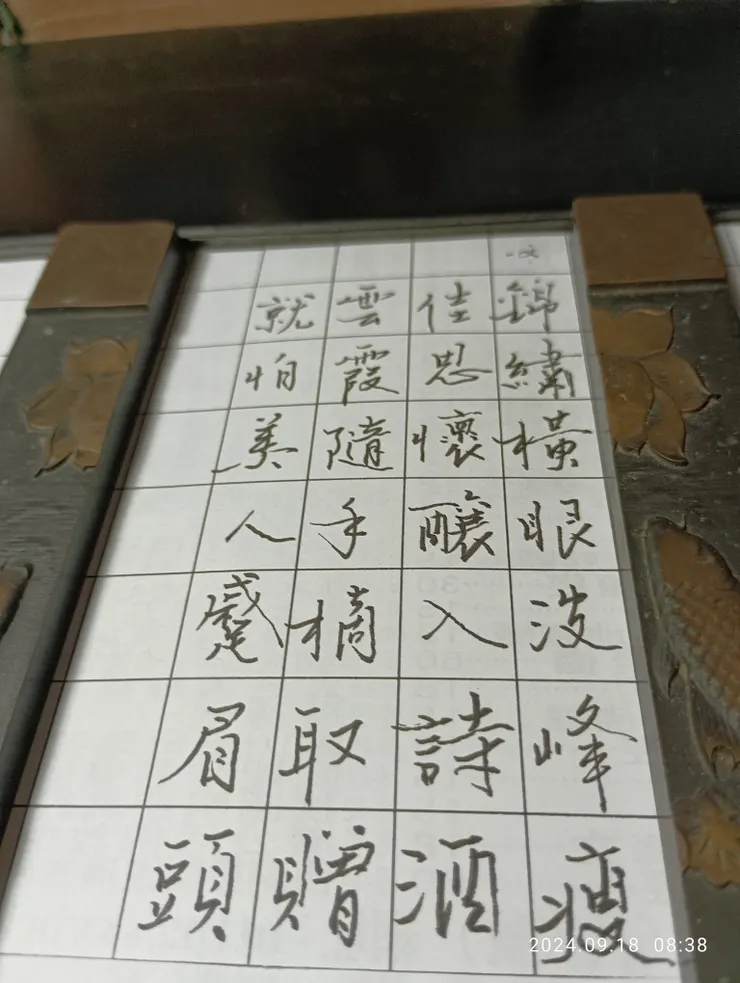 錦繡橫眼波峰瘦
佳思懷釀入詩酒
雲霞隨手摘取贈
就怕美人蹙眉頭
2024.09.18 08:38